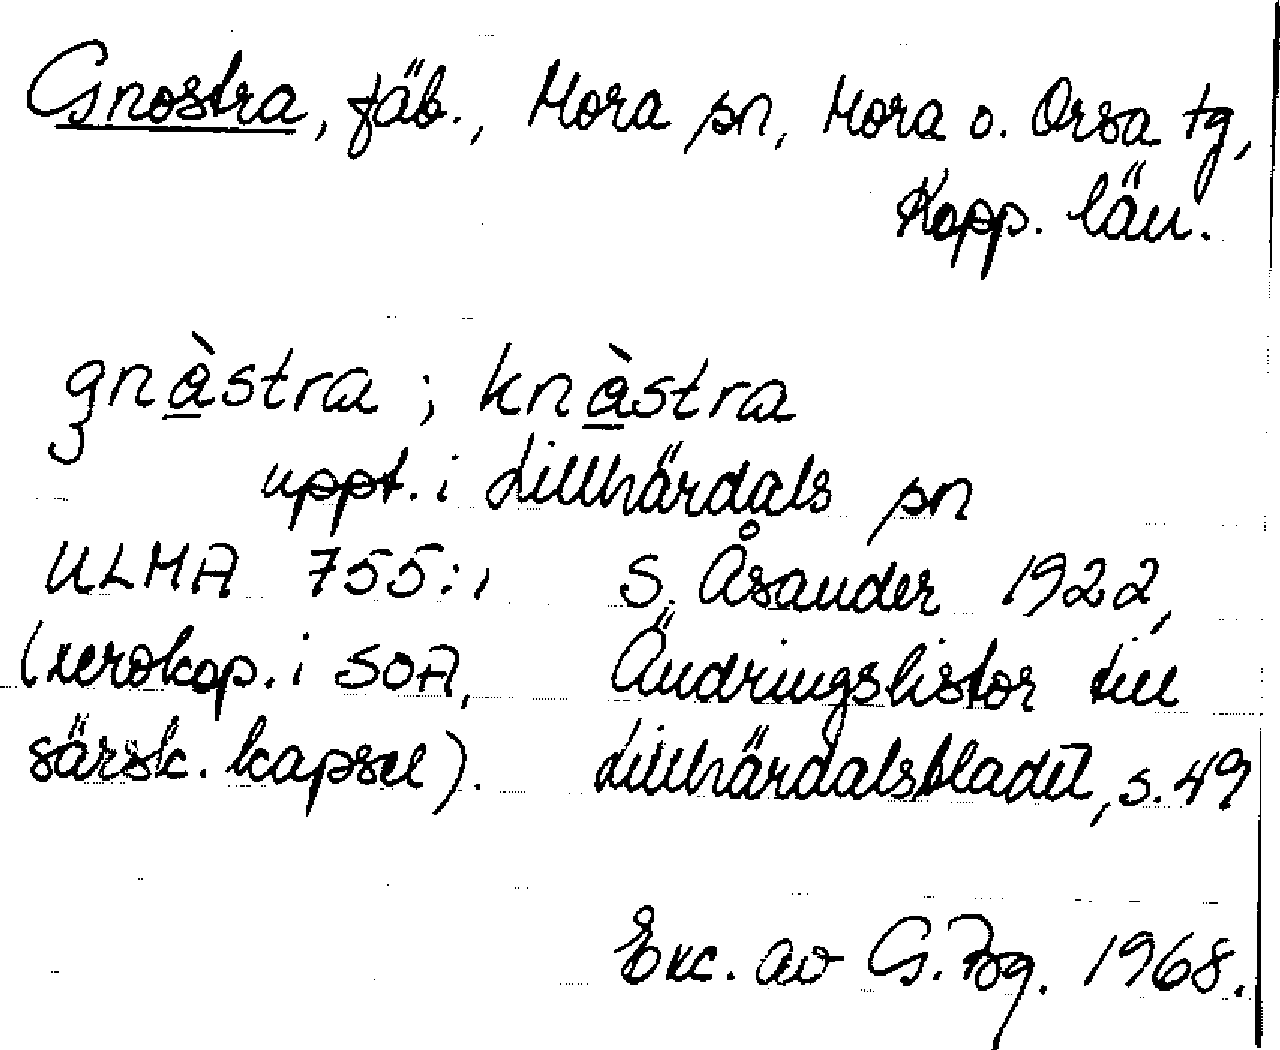 Gnostra, fäb., Mora sn, Mora o. Orsa tg,
Kopp. län.
gnàstra ; knàstra
uppt. i Lillhärdals sn
ULMA 755:1 S. Åsander 1922,
(xerokop. i SOA, Ändringslistor till
särsk. kapsel). Lillhärdalsbladet, s. 49
Exc. av G. 1968.